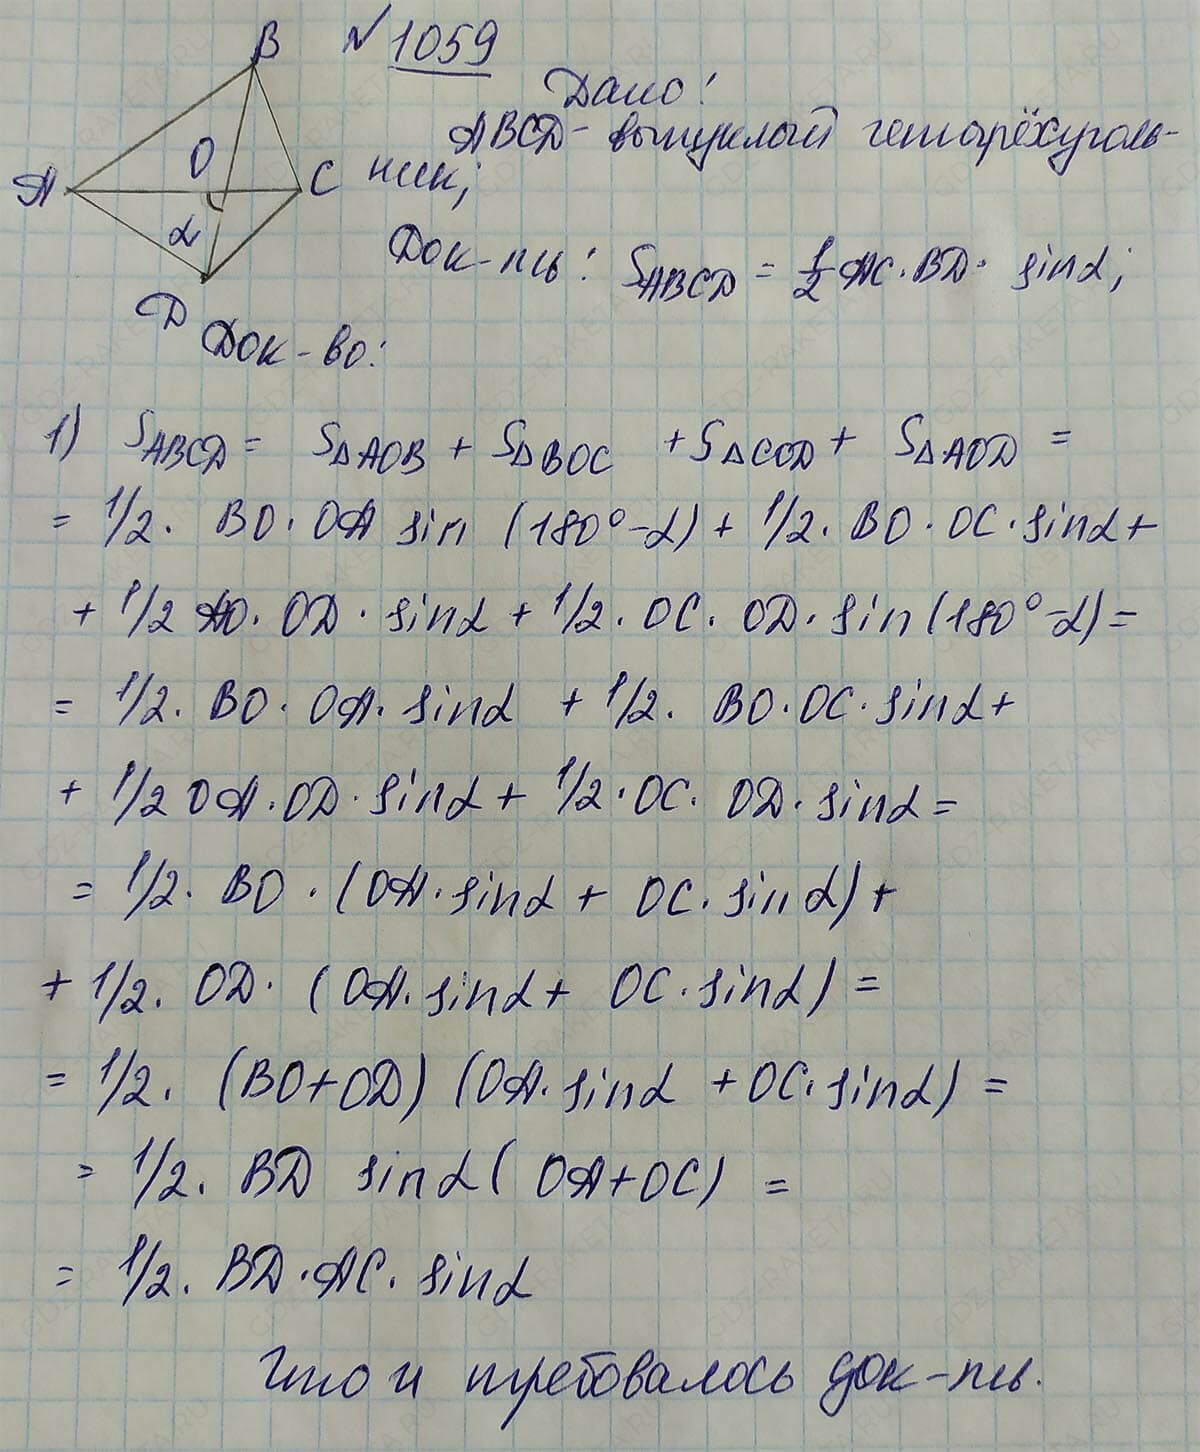 № 1059
Дано:
ABCD - выпуклый четырёхуголь-
ник;
Док-ть: S_ABCD = 1/2 AC · BD · sin α;
B
O
A
C
α
D
Док-во:
1) S_ABCD = S_ΔAOB + S_ΔBOC + S_ΔCOD + S_ΔAOD =
= 1/2 · BO · OA sin (180° - α) + 1/2 · BO · OC · sin α +
+ 1/2 AO · OD · sin α + 1/2 · OC · OD · sin (180° - α) =
= 1/2 · BO · OA · sin α + 1/2 · BO · OC · sin α +
+ 1/2 OA · OD · sin α + 1/2 · OC · OD · sin α =
= 1/2 · BO · (OA · sin α + OC · sin α) +
+ 1/2 · OD · (OA · sin α + OC · sin α) =
= 1/2 · (BO + OD) (OA · sin α + OC · sin α) =
= 1/2 · BD sin α (OA + OC) =
= 1/2 · BD · AC · sin α
Что и требовалось док-ть.
GDZ-RAKETA.RU